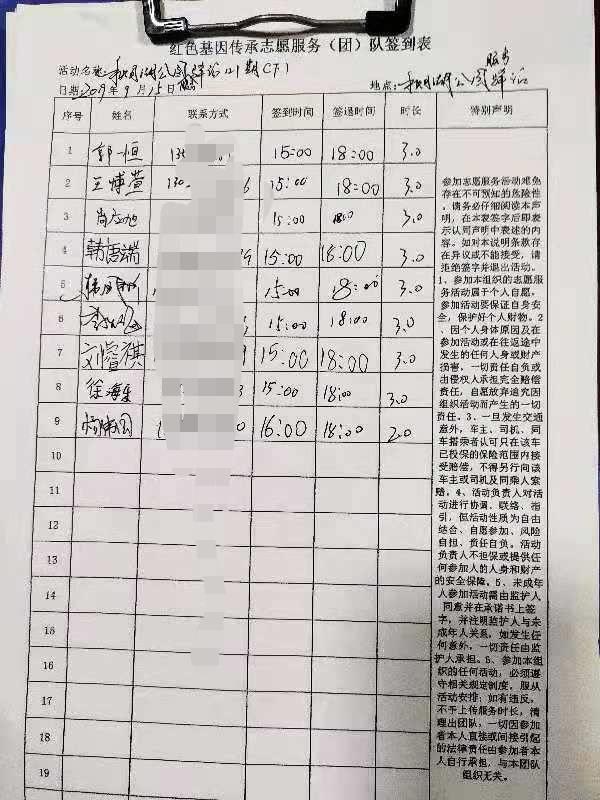 红色基因传承志愿服务（团）队签到表
活动名称：湖公园驿站121期（下）
服务
日期2019年9月15日
地点：湖公园驿站
序号 姓名 联系方式 签到时间 签退时间 时长 特别声明
1 郭一恒 15:00 18:00 3.0
2 王博萱 15:00 18:00 3.0
3 15:00 18:00 3.0
4 韩雨端 15:00 18:00 3.0
5 15:00 18:00 3.0
6 15:00 18:00 3.0
7 刘睿祺 15:00 18:00 3.0
8 徐海 15:00 18:00 3.0
9 16:00 18:00 2.0
10
11
12
13
14
15
16
17
18
19
参加志愿服务活动难免
存在不可预知的危险性
，请务必仔细阅读本声
明，在本表签字后即表
示认同声明中表述的内
容。如对本说明条款存
在异议或不能接受，请
拒绝签字并退出活动。
1、参加本组织的志愿服
务活动属于个人自愿。
参加活动要保证自身安
全，保护好个人财物。2
、因个人身体原因及在
参加活动或在往返途中
发生的任何人身或财产
损害，一切责任自负或
由侵权人承担完全赔偿
责任，自愿放弃追究因
组织活动而产生的一切
责任。3、一旦发生交通
意外，车主、司机、同
车搭乘者认可只在该车
已投保的保险范围内接
受赔偿，不得另行向该
车主或司机及同乘人索
赔。4、活动负责人对活
动进行协调、联络、指
引，但活动性质为自由
结合、自愿参加、风险
自担、责任自负。活动
负责人不担保或提供任
何参加人的人身和财产
的安全保障。5、未成年
人参加活动需由监护人
同意并在承诺书上签
字，并注明监护人与未
成年人关系，如发生任
何意外，一切责任由监
护人承担。5、参加本组
织的任何活动，必须遵
守相关规定制度，服从
活动安排；如有违反，
不予上传服务时长，清
理出团队，一切因参加
者本人直接或间接引起
的法律责任由参加者本
人自行承担，与本团队
组织无关。